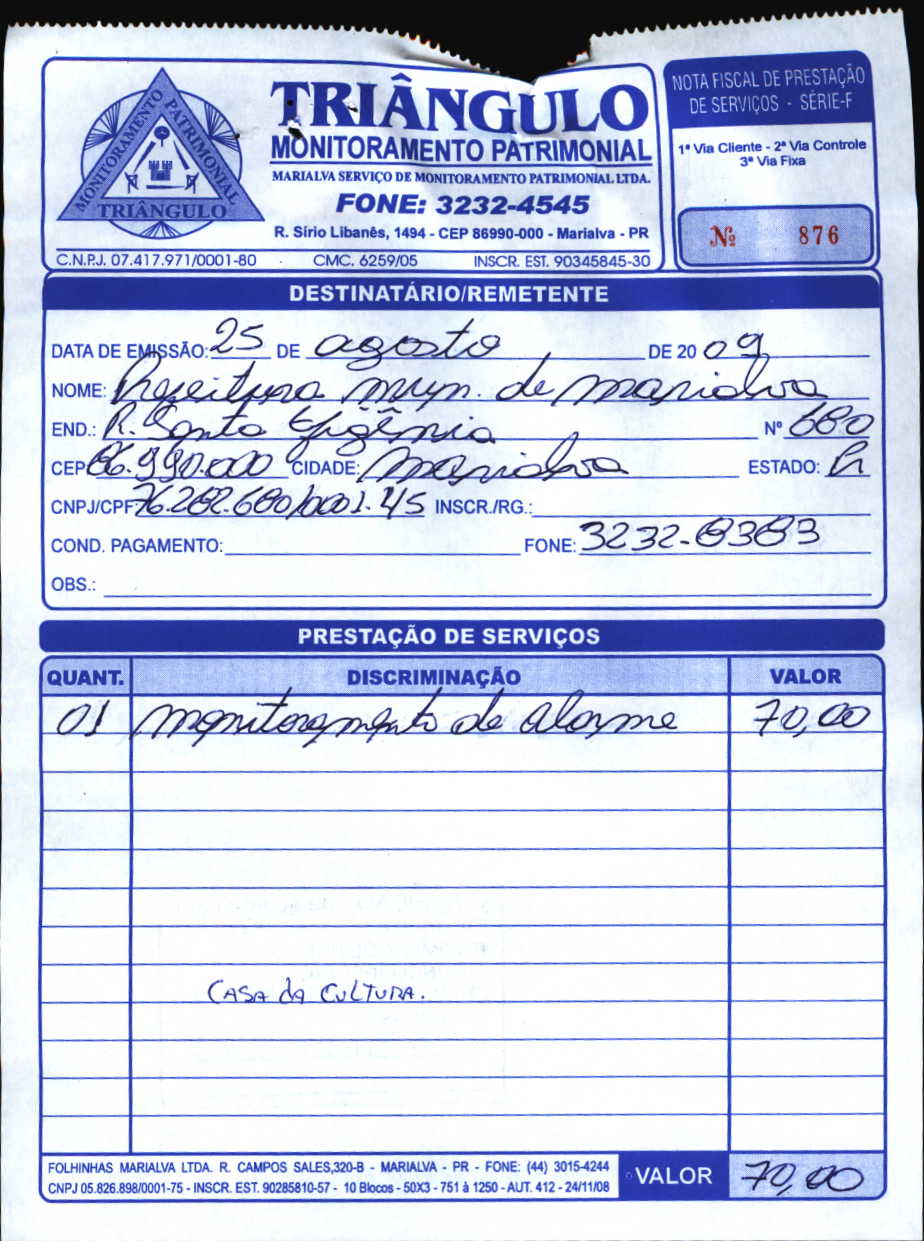 TRIÂNGULO
MONITORAMENTO PATRIMONIAL
MARIALVA SERVIÇO DE MONITORAMENTO PATRIMONIAL LTDA.
FONE: 3232-4545
R. Sírio Libanês, 1494 - CEP 86990-000 - Marialva - PR
MONITORAMENTO PATRIMONIAL
TRIÂNGULO
C.N.P.J. 07.417.971/0001-80 CMC. 6259/05 INSCR. EST. 90345845-30
NOTA FISCAL DE PRESTAÇÃO
DE SERVIÇOS - SÉRIE-F
1ª Via Cliente - 2ª Via Controle
3ª Via Fixa
Nº 876
DESTINATÁRIO/REMETENTE
DATA DE EMISSÃO: 25 DE agosto DE 20 09
NOME: Prefeitura mun. de marialva
END.: R. Santa Efigênia Nº 680
CEP 86.990.000 CIDADE: marialva ESTADO: Pr
CNPJ/CPF: 76.282.680/0001.45 INSCR./RG.:
COND. PAGAMENTO: FONE: 3232-8383
OBS.:
PRESTAÇÃO DE SERVIÇOS
QUANT. DISCRIMINAÇÃO VALOR
01 monitoramento de alarme 70,00
CASA da CULTURA.
FOLHINHAS MARIALVA LTDA. R. CAMPOS SALES,320-B - MARIALVA - PR - FONE: (44) 3015-4244
CNPJ 05.826.898/0001-75 - INSCR. EST. 90285810-57 - 10 Blocos - 50X3 - 751 à 1250 - AUT. 412 - 24/11/08
VALOR 70,00